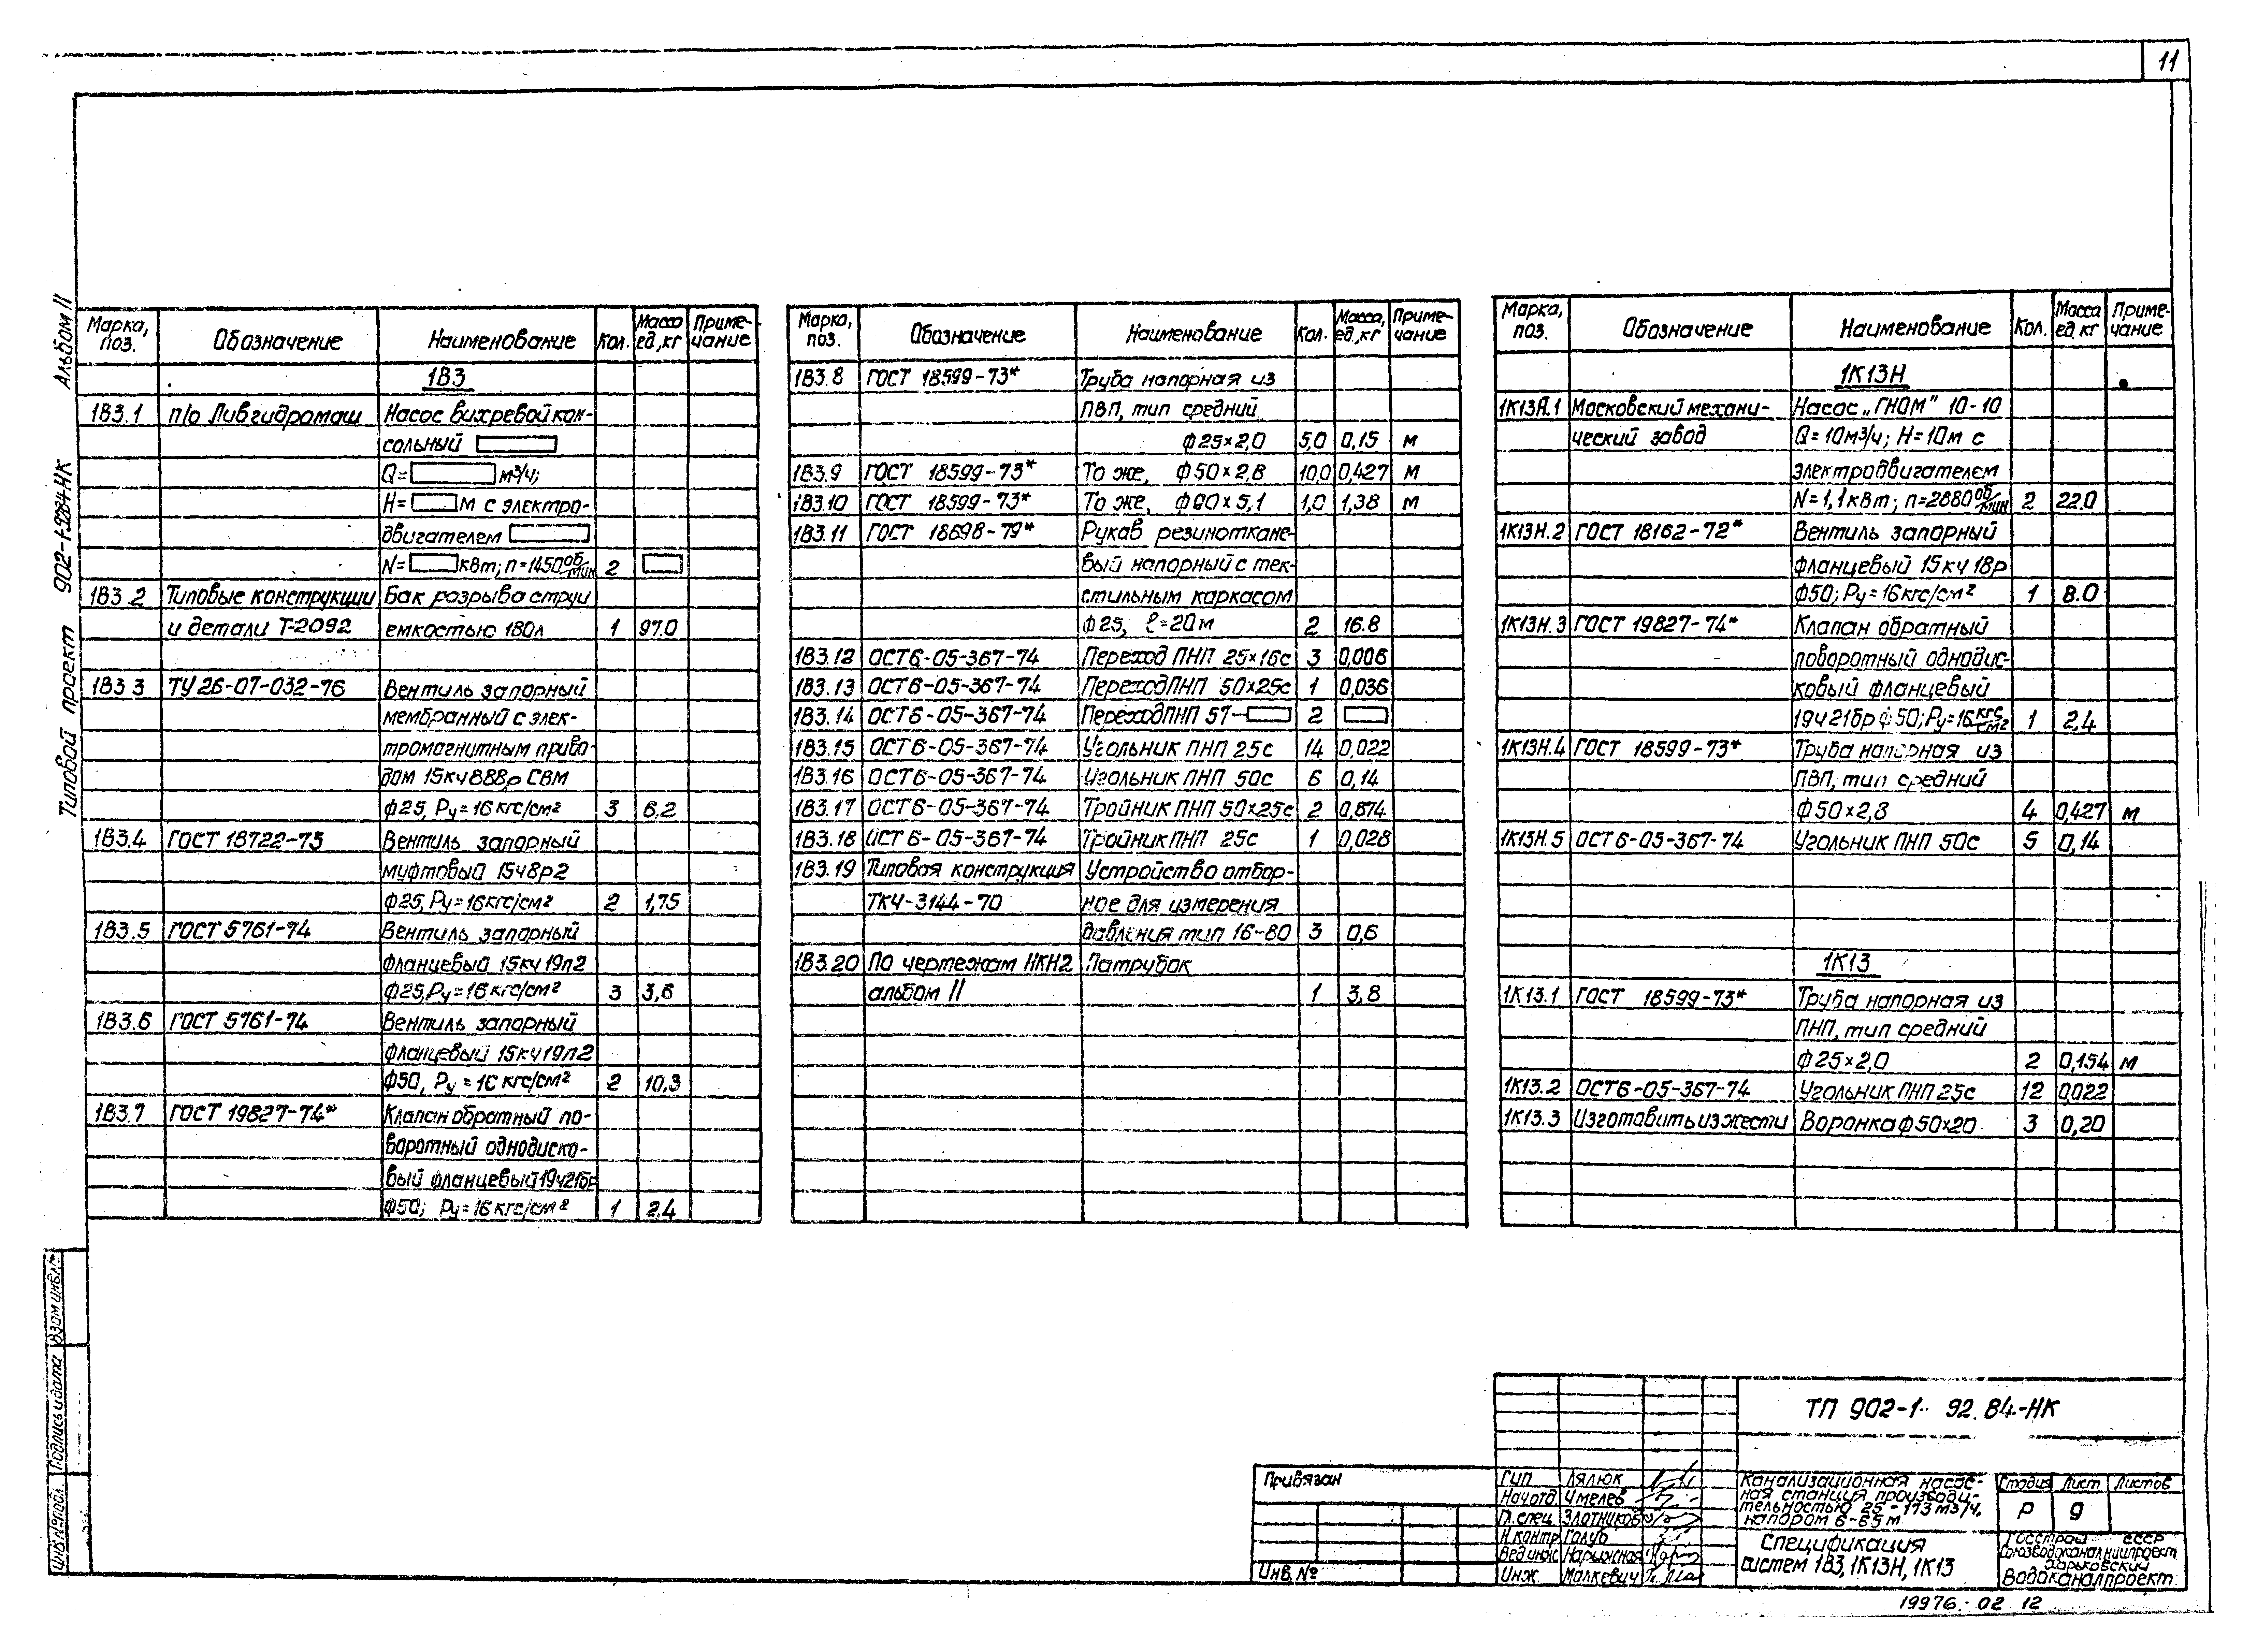 11
Альбом II
Типовой проект 902-1-92.84-НК
Марка, поз. Обозначение Наименование Кол. Масса ед., кг Приме-чание
1В3
1В3.1 п/о Ливгидромаш Насос вихревой кон-
сольный
Q= м³/ч;
H= м с электро-
двигателем
N= кВт; n=1450 об/мин 2
1В3.2 Типовые конструкции Бак разрыва струи
и детали Т-2092 емкостью 180л 1 97.0
1В3 3 ТУ 26-07-032-76 Вентиль запорный
мембранный с элек-
тромагнитным приво-
дом 15кч888р СВМ
ф25, Ру=16 кгс/см² 3 6,2
1В3.4 ГОСТ 18722-73 Вентиль запорный
муфтовый 15ч8р2
ф25, Ру=16кгс/см² 2 1,75
1В3.5 ГОСТ 5761-74 Вентиль запорный
фланцевый 15кч19п2
ф25, Ру=16 кгс/см² 3 3,6
1В3.6 ГОСТ 5761-74 Вентиль запорный
фланцевый 15кч19п2
ф50, Ру=16 кгс/см² 2 10,3
1В3.7 ГОСТ 19827-74* Клапан обратный по-
воротный однодиско-
вый фланцевый 19ч21бр
ф50; Ру=16 кгс/см² 1 2,4
Марка, поз. Обозначение Наименование Кол. Масса, ед., кг Приме-чание
1В3.8 ГОСТ 18599-73* Труба напорная из
ПВП, тип средний
ф25×2,0 5,0 0,15 м
1В3.9 ГОСТ 18599-73* То же, ф50×2,8 10,0 0,427 м
1В3.10 ГОСТ 18599-73* То же, ф90×5,1 1,0 1,38 м
1В3.11 ГОСТ 18698-79* Рукав резиноткане-
вый напорный с тек-
стильным каркасом
ф25, ℓ=20м 2 16.8
1В3.12 ОСТ6-05-367-74 Переход ПНП 25×16с 3 0,006
1В3.13 ОСТ6-05-367-74 Переход ПНП 50×25с 1 0,036
1В3.14 ОСТ6-05-367-74 Переход ПНП 57- 2
1В3.15 ОСТ6-05-367-74 Угольник ПНП 25с 14 0,022
1В3.16 ОСТ6-05-367-74 Угольник ПНП 50с 6 0,14
1В3.17 ОСТ6-05-367-74 Тройник ПНП 50×25с 2 0,874
1В3.18 ОСТ6-05-367-74 Тройник ПНП 25с 1 0,028
1В3.19 Типовая конструкция Устройство отбор-
ТКЧ-3144-70 ное для измерения
давления тип 16-80 3 0,6
1В3.20 По чертежам НКН2 Патрубок
альбом II 1 3,8
Марка, поз. Обозначение Наименование Кол. Масса ед, кг Приме-чание
1К13Н
1К13Н.1 Московский механи- Насос „ГНОМ" 10-10
ческий завод Q=10м³/ч; H=10м с
электродвигателем
N=1,1кВт; n=2880 об/мин 2 22.0
1К13Н.2 ГОСТ 18162-72* Вентиль запорный
фланцевый 15кч18р
ф50; Ру=16кгс/см² 1 8.0
1К13Н.3 ГОСТ 19827-74* Клапан обратный
поворотный однодис-
ковый фланцевый
19ч21бр ф50; Ру=16 кгс/см² 1 2,4
1К13Н.4 ГОСТ 18599-73* Труба напорная из
ПВП, тип средний
ф50×2,8 4 0,427 м
1К13Н.5 ОСТ6-05-367-74 Угольник ПНП 50с 5 0,14
1К13
1К13.1 ГОСТ 18599-73* Труба напорная из
ПНП, тип средний
ф25×2,0 2 0,154 м
1К13.2 ОСТ6-05-367-74 Угольник ПНП 25с 12 0,022
1К13.3 Изготовить из жести Воронка ф50×20 3 0,20
Инв. № подл. Подпись и дата Взам инв. №
Привязан
Инв. №
Гип Лялюк
Нач отд. Чмелев
Гл. спец. Злотников
Н. контр Голуб
Вед инж Нарыжная
Инж. Малкевич
ТП 902-1- 92.84-НК
Канализационная насос-
ная станция производи-
тельностью 25-173 м3/ч,
напором 6-65 м
Стадия Лист Листов
Р 9
Спецификация
систем 1В3, 1К13Н, 1К13
Госстрой СССР
Союзводоканалниипроект
Харьковский
Водоканалпроект
19976-02 12